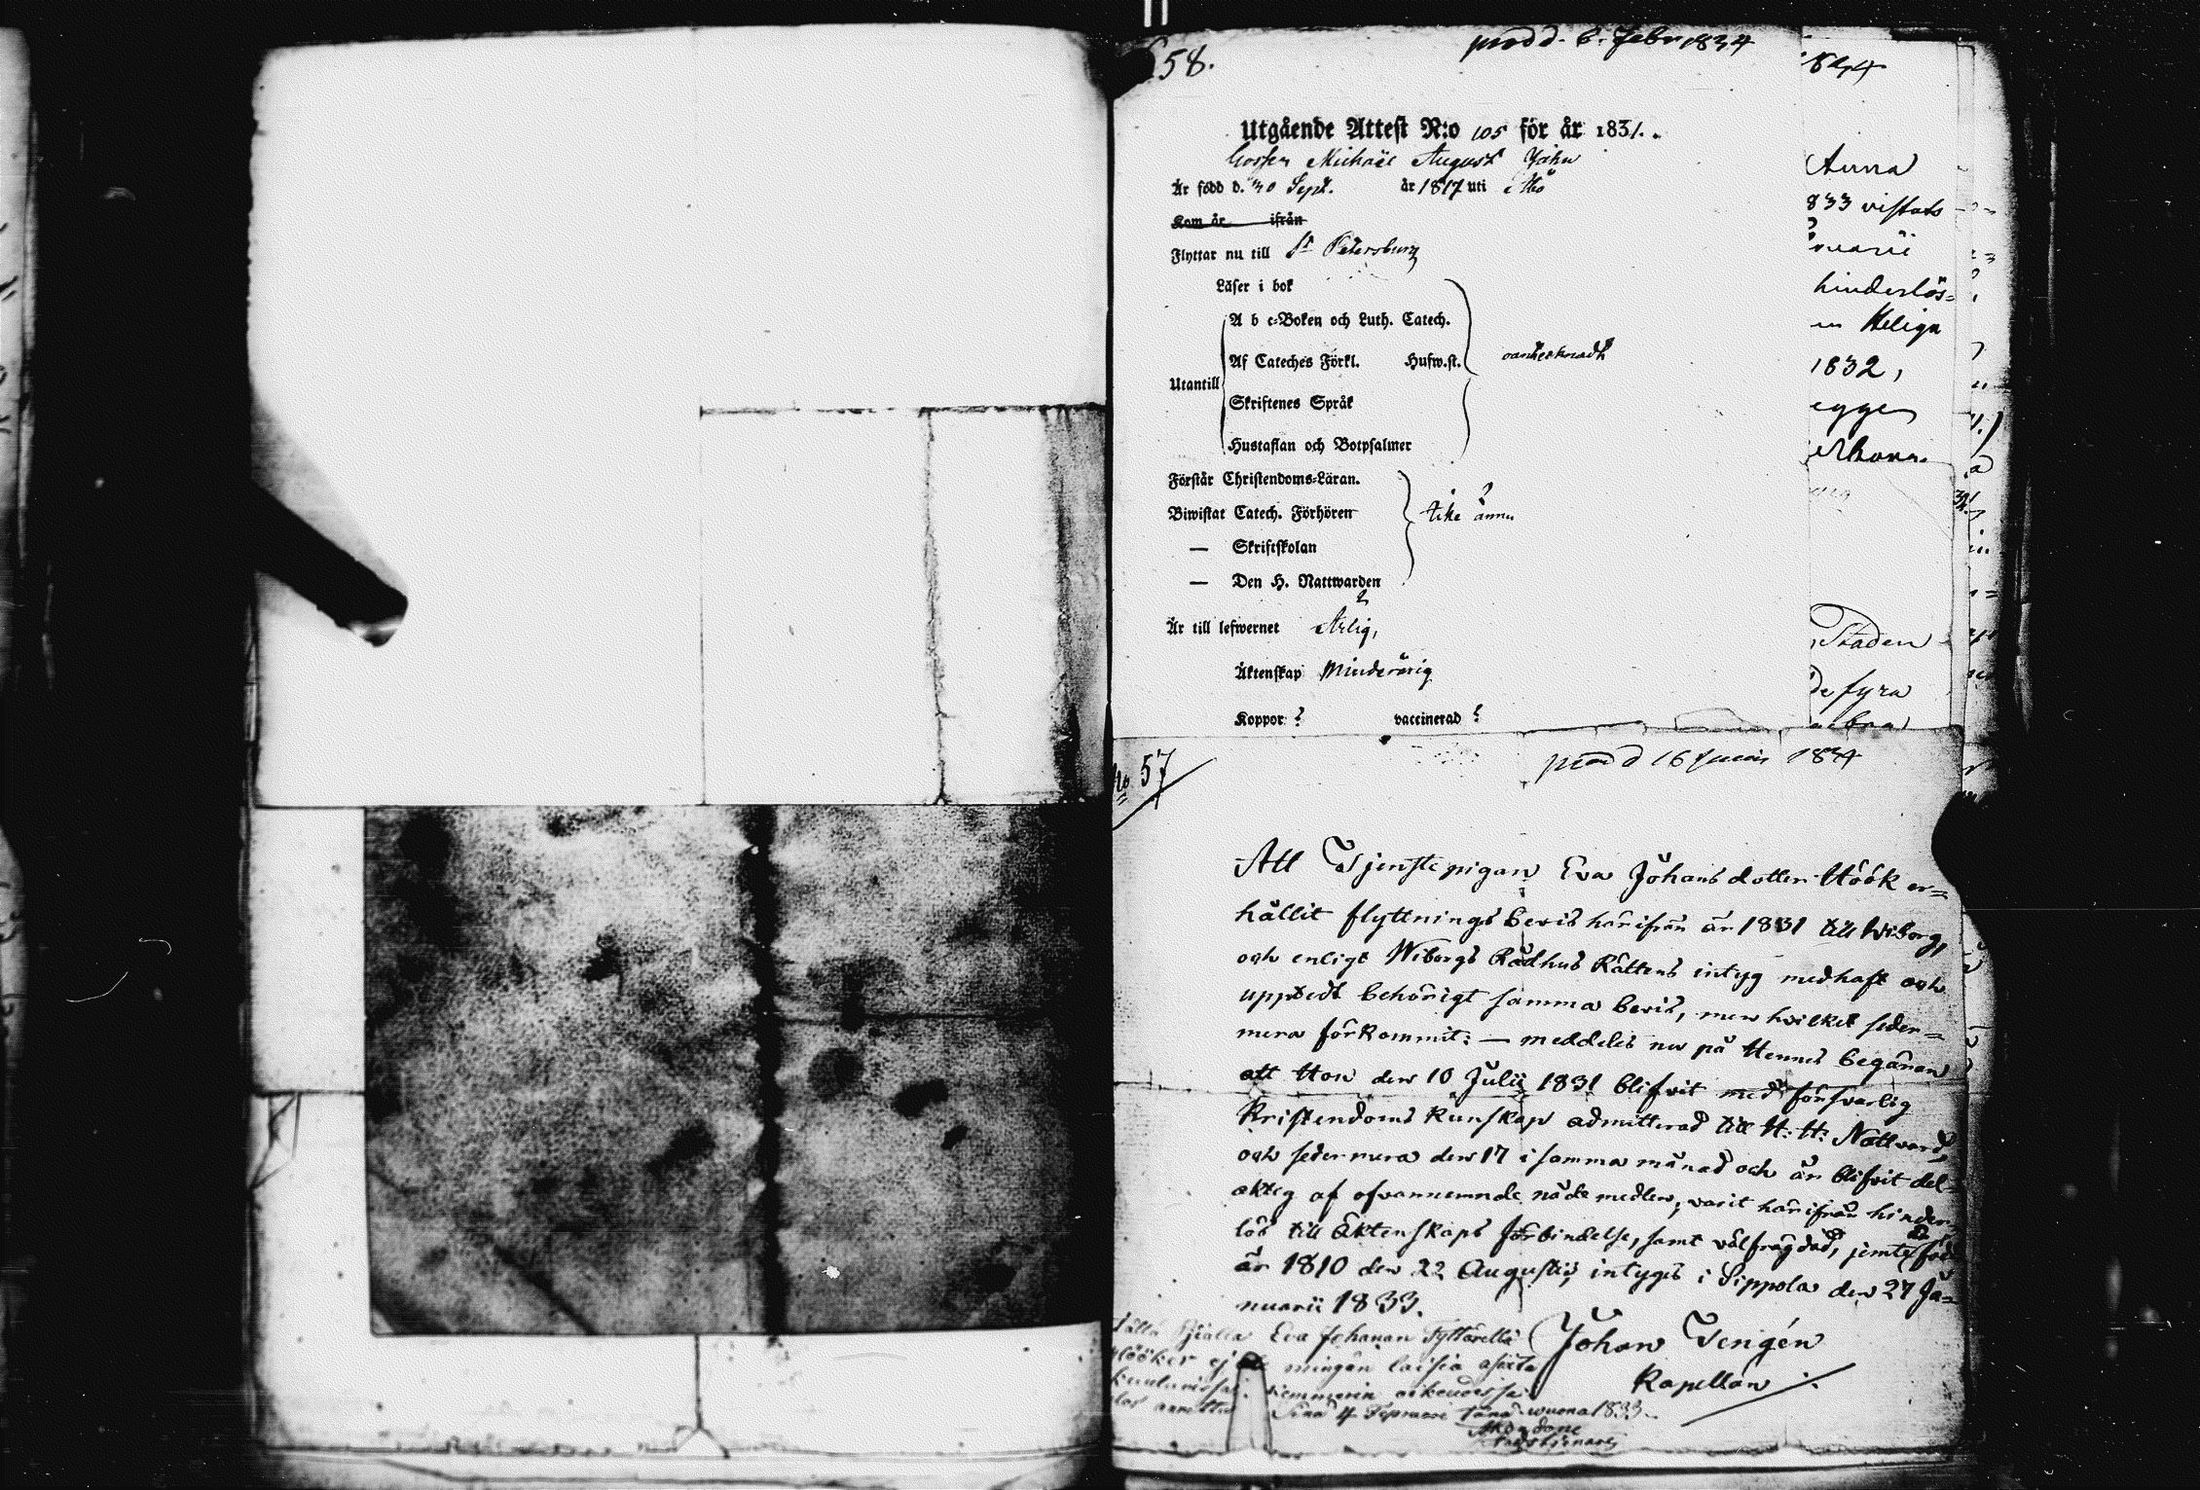 58.
prod d. 6. Febr 1834
Utgående Attest N:o 105 för år 1831.
Gossen Michael August Jahn
Är född d. 30 Sept. år 1817 uti Åbo
Kom år ifrån
Flyttar nu till St Petersburg
Läser i bok
A b c-Boken och Luth. Catech.
Af Cateches Förkl. Hufw.st.
Utantill
Skriftenes Språk
Hustaflan och Botpsalmer
Förstår Christendoms-Läran.
Biwistat Catech. Förhören
icke ännu
— Skriftskolan
— Den H. Nattwarden
Är till lefwernet Ärlig,
Äktenskap Minderårig
Koppor ? vaccinerad ?
Anna
833 vistats
hinderlös=
Helga
1832,
Staden
de fyra
No 57
prod d 16 1834
Att Tjenstepigan Eva Johansdotter Höök er=
hållit flyttnings bevis härifrån år 1831 till Wiborg,
och enligt Wiborgs Rådhus Rättens intyg medhaft och
uppvedt behörigt samma bevis, men hvilket seder=
mera förkommit: — meddeles nu på Hennes begäran
att Hon den 10 Julii 1831 blifvit med försvarlig
Kristendoms kunskap admitterad till H: H: Nattvard,
och sedermera den 17 i samma månad och år blifvit del=
aktig af ofvannemnde nåde medlen, varit härifrån hinder=
lös till Äktenskaps Förbindelse, samt välfrägdad, jemte
år 1810 den 22 Augusti, intyges i Sippola den 27 Ja=
nuarii 1833.
Johan Tengén
Kapellan
Tällä Eva Johanan Tyttärellä
Hööker ej mingän laisia
Sinä 4 Tänä wuona 1833.